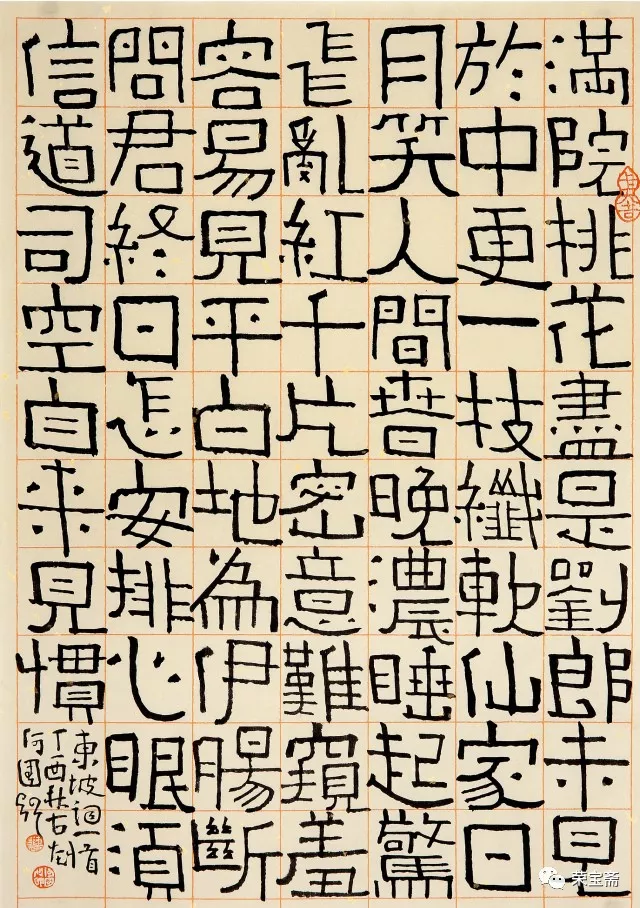 滿院桃花盡是劉郎未見
於中更一枝纖軟仙家日
月笑人間春晚濃睡起驚
飛亂紅千片密意難窺羞
容易見平白地為伊腸斷
問君終日怎安排心眼須
信道司空自來見慣
東坡詞一首
丁酉秋
何國
荣宝斋